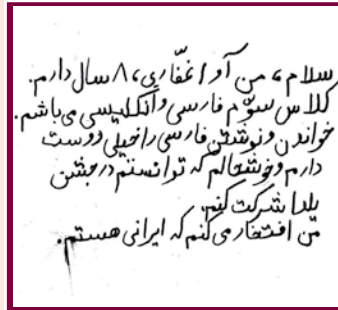 سلام، من آوا غفّاری، ۸ سال دارم.
کلاس سوّم فارسی و انگلیسی می‌باشم.
خواندن و نوشتن فارسی را خیلی دوست
دارم و خوشحالم که توانستم در جشن
یلدا شرکت کنم.
من افتخار می‌کنم که ایرانی هستم.